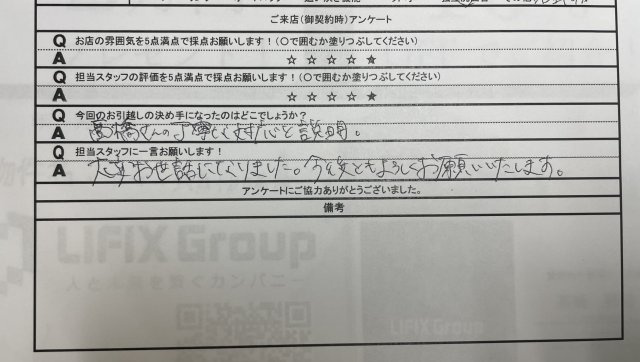 ご来店(御契約時)アンケート
Q お店の雰囲気を5点満点で採点お願いします!(〇で囲むか塗りつぶしてください)
A ☆ ☆ ☆ ☆ ★
Q 担当スタッフの評価を5点満点で採点お願いします!(〇で囲むか塗りつぶしてください)
A ☆ ☆ ☆ ☆ ★
Q 今回のお引越しの決め手になったのはどこでしょうか?
A 高橋さんの丁寧な対応と説明。
Q 担当スタッフに一言お願いします!
A 大変お世話になりました。今後ともよろしくお願いいたします。
アンケートにご協力ありがとうございました。
備考
LIFIX Group
人と未来を繋ぐカンパニー
LIFIX Group